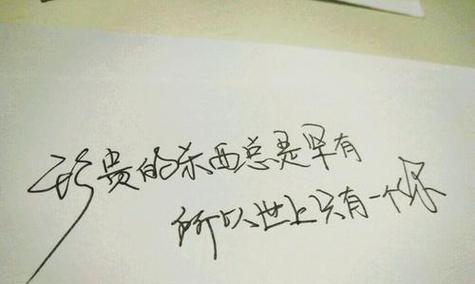 珍贵的东西总是罕有
所以世上只有一个你